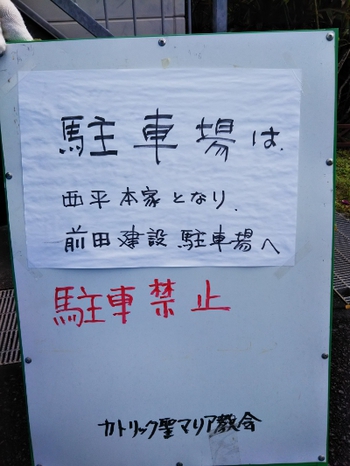 駐車場は
西平本家となり.
前田建設駐車場へ
駐車禁止
カトリック聖マリア教会